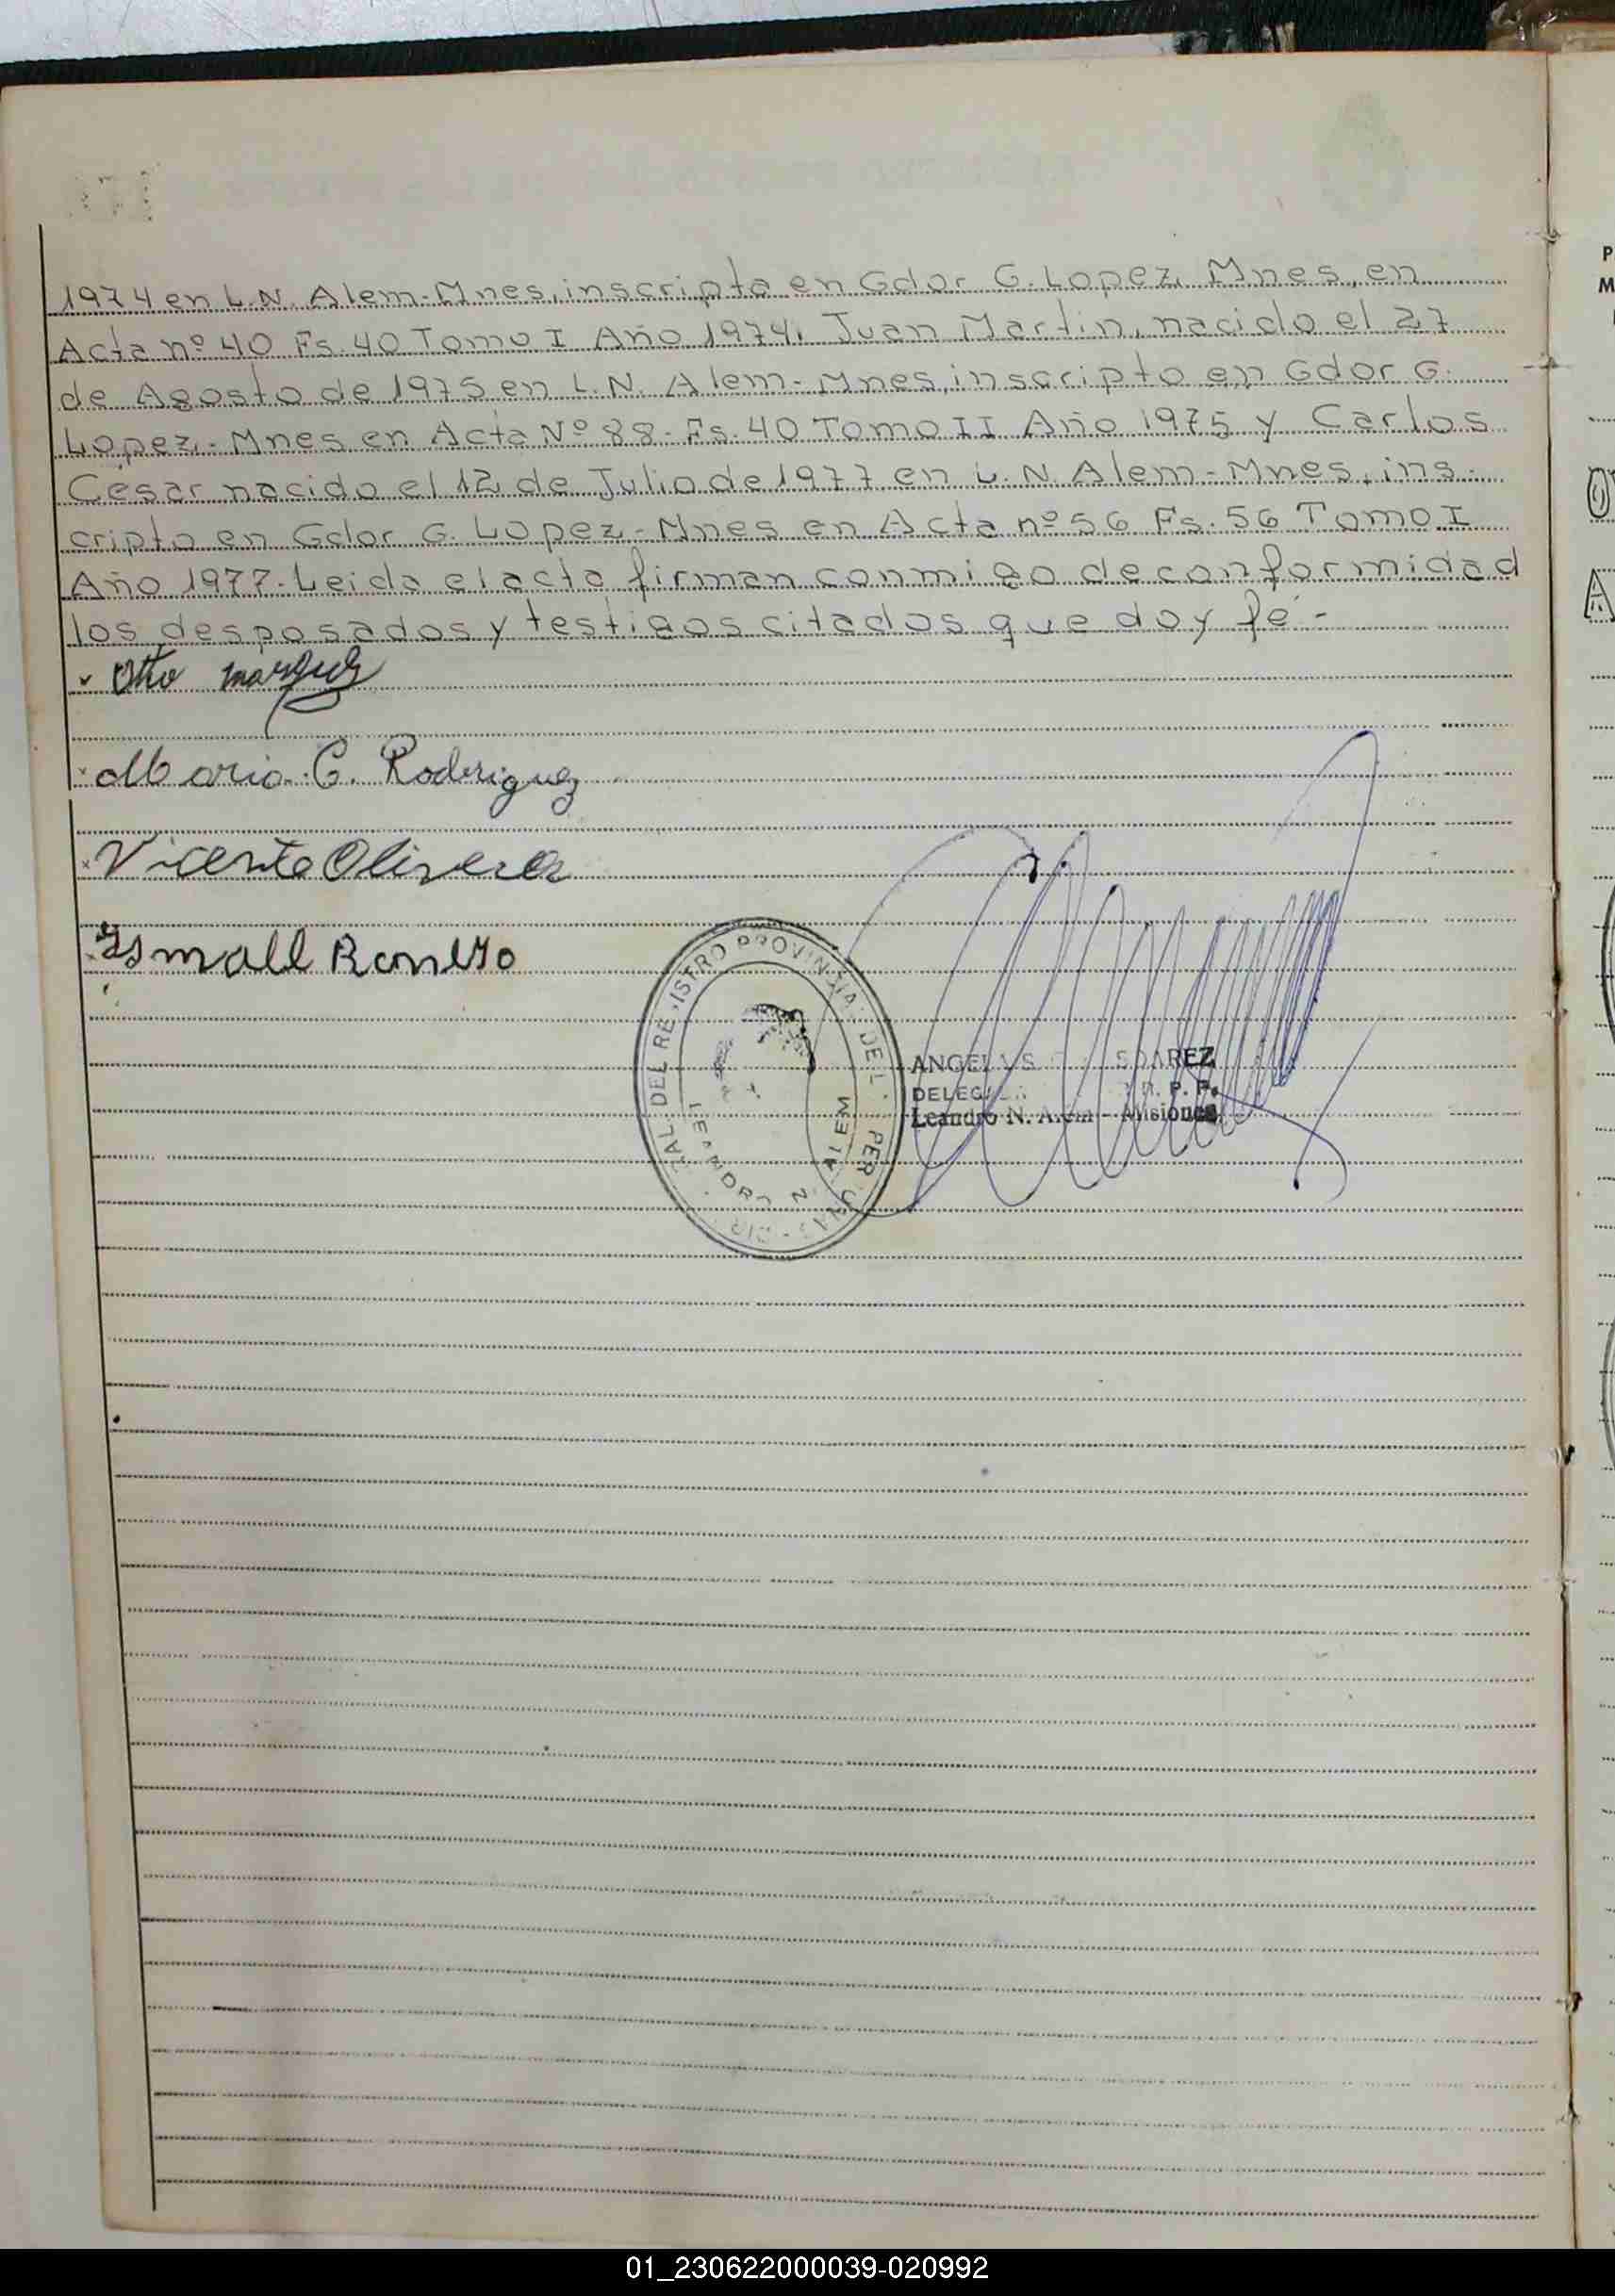 1974 en L.N. Alem-Mnes, inscripta en Gdor G. Lopez, Mnes, en
Acta nº 40 Fs. 40 Tomo I Año 1974, Juan Martin, nacido el 27
de Agosto de 1975 en L.N. Alem-Mnes, inscripto en Gdor G.
Lopez-Mnes en Acta Nº 88-Fs. 40 Tomo II Año 1975 y Carlos
César nacido el 12 de Julio de 1977 en L.N. Alem-Mnes, ins-
cripto en Gdor G. Lopez-Mnes en Acta nº 56 Fs. 56 Tomo I
Año 1977-Leida el acta firman conmigo de conformidad
los desposados y testigos citados que doy fé-
Otto
Maria C. Rodriguez
Vicente Olivera
DEL REGISTRO PROVINCIAL DE
LEANDRO N. ALEM
SOAREZ
Leandro N. Alem - Misiones
01_230622000039-020992